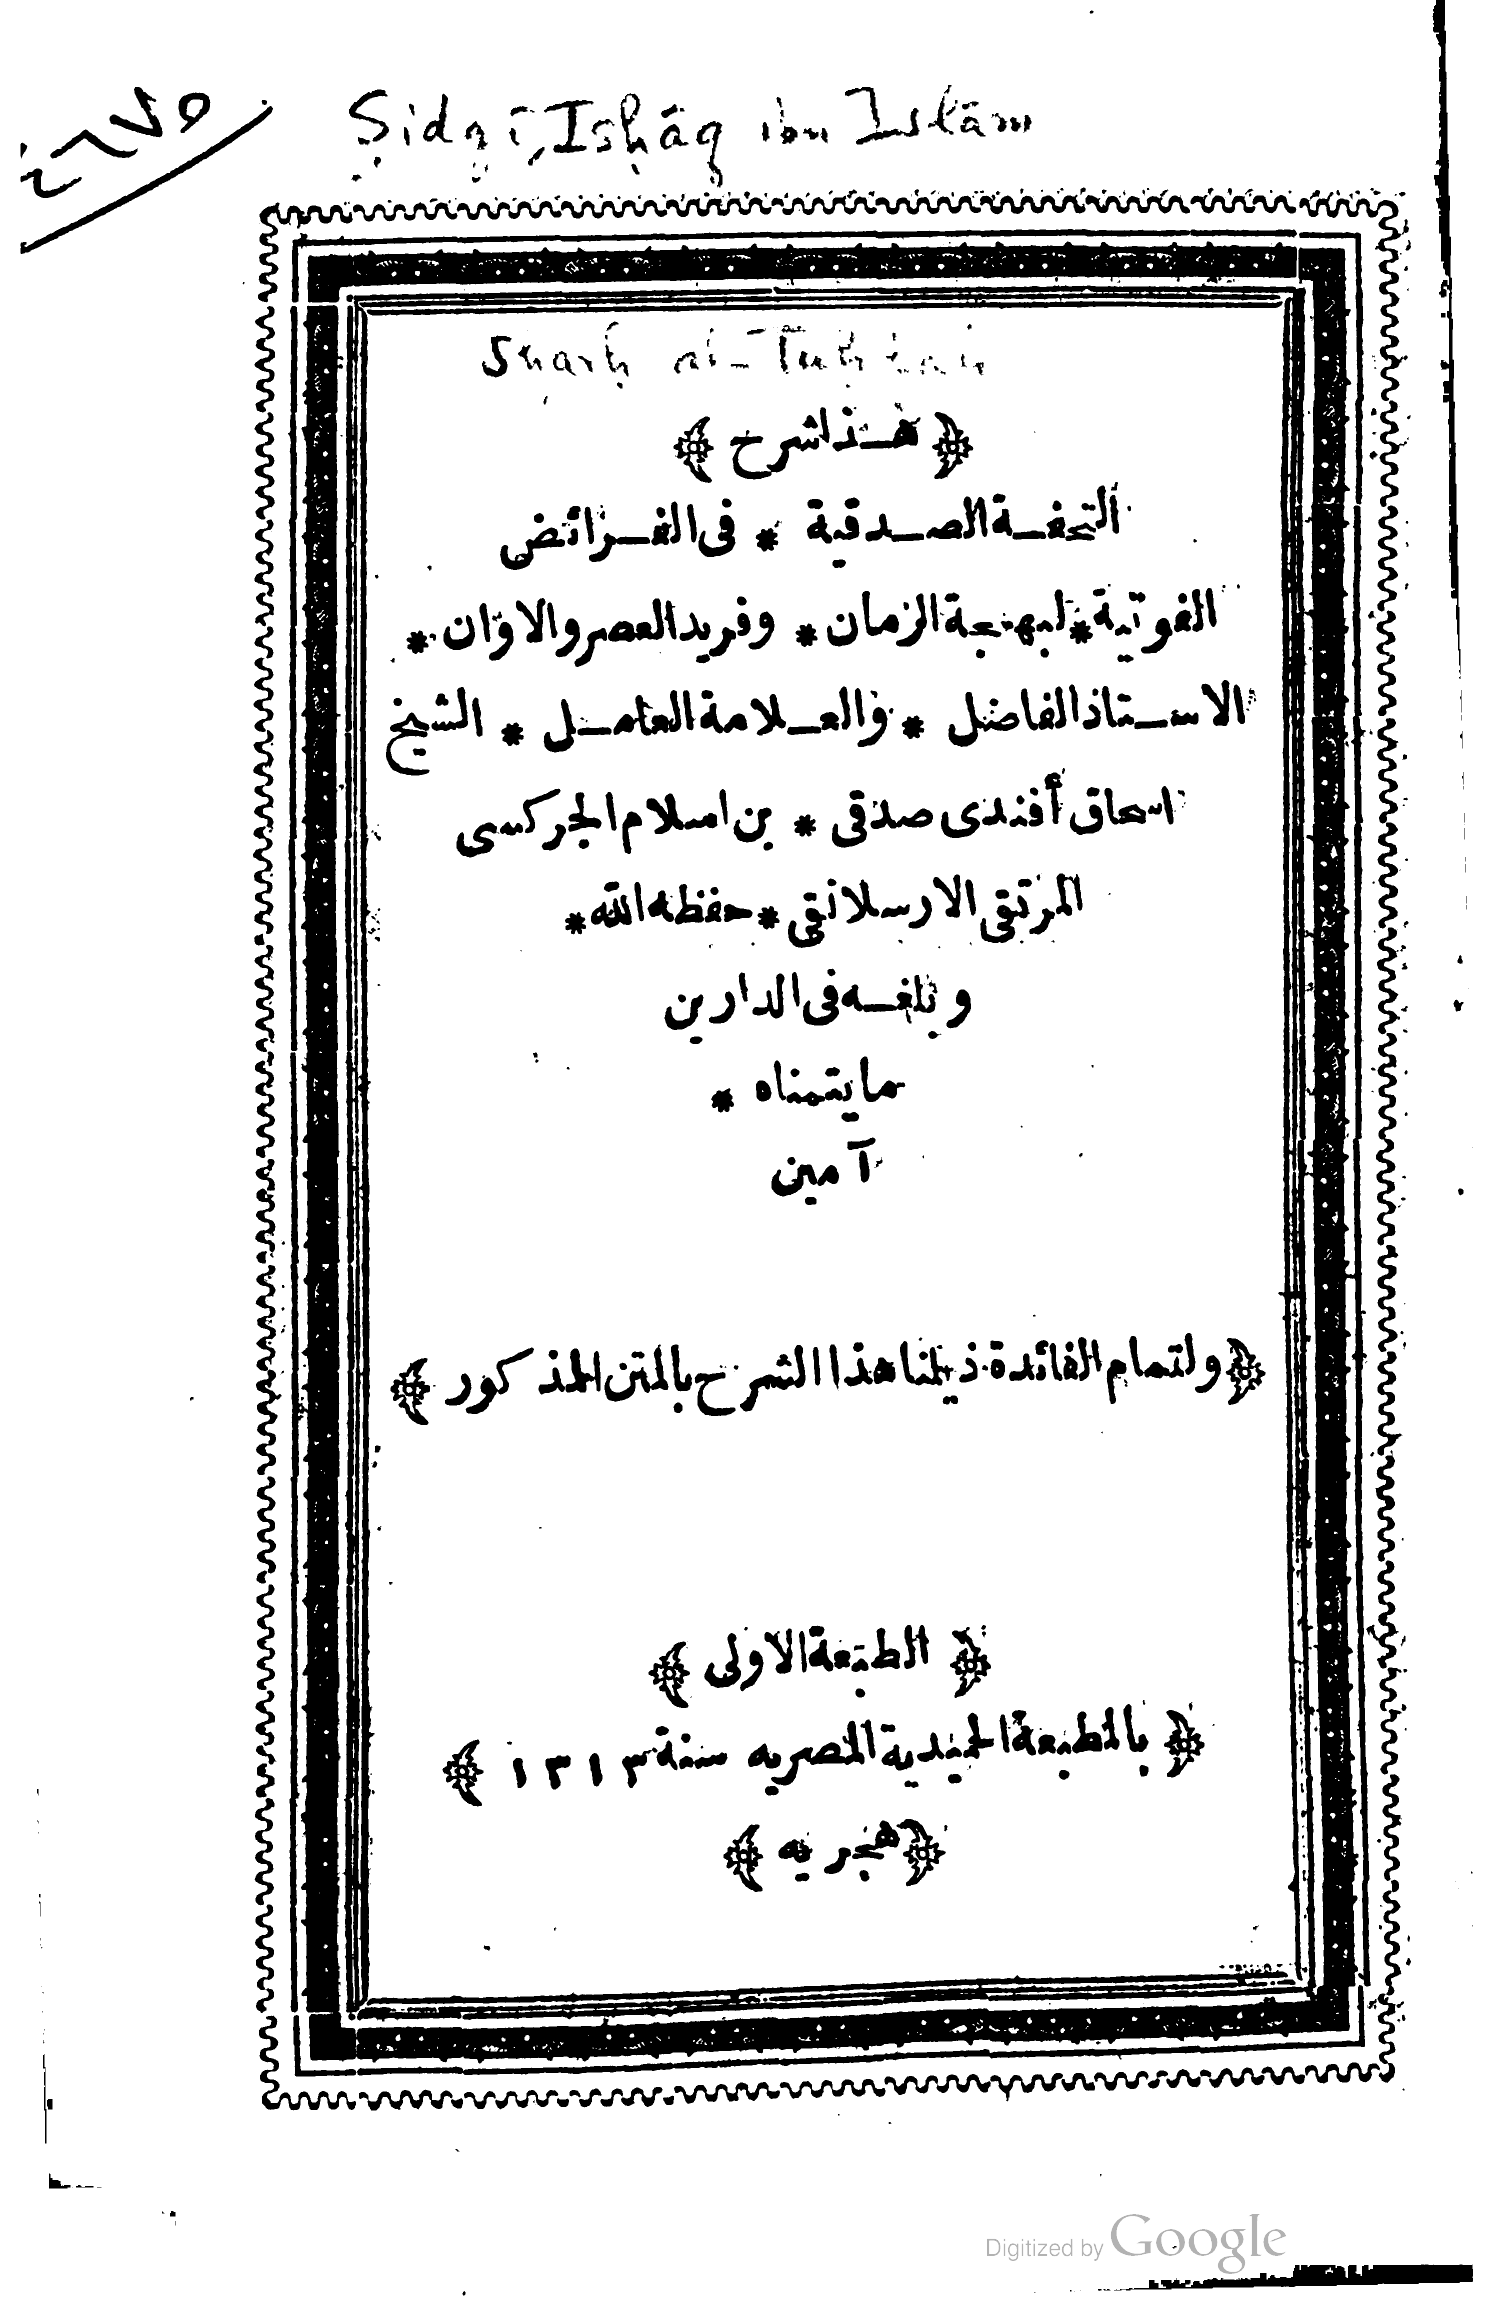 ٤٦٧٥
Ṣidqī, Isḥāq ibn Islām
Sharḥ al-Tuḥfah
﴿هـذا شرح﴾
التحفـة الصـدقية * فى الفـرائض
الفوتية * لبهجة الزمان * وفريد العصر والاوان *
الاسـتاذ الفاضل * والعـلامة العامـل * الشيخ
اسحاق أفندى صدقى * بن اسلام الجركسى
المزتقى الارسلانقى * حفظه الله *
وبلغـه فى الدارين
ما يتمناه *
آمين
﴿ولتمام الفائدة ذيلنا هذا الشرح بالمتن المذكور﴾
﴿الطبعة الاولى﴾
﴿بالمطبعة الحميدية المصريه سنة ١٣١٣﴾
﴿هجريه﴾
Digitized by Google